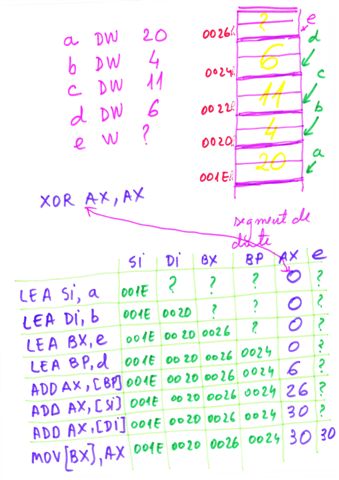 a DW 20
b DW 4
c DW 11
d DW 6
e W ?
? e
0026 d
6
0024 c
11
0022 b
4
0020 a
20
001E
XOR AX, AX
segment de
date
SI DI BX BP AX e
LEA Si, a 001E ? ? ? 0 ?
LEA Di, b 001E 0020 ? ? 0 ?
LEA BX, e 001E 0020 0026 ? 0 ?
LEA BP, d 001E 0020 0026 0024 0 ?
ADD AX, [BP] 001E 0020 0026 0024 6 ?
ADD AX, [Si] 001E 0020 0026 0024 26 ?
ADD AX, [Di] 001E 0020 0026 0024 30 ?
MOV [BX], AX 001E 0020 0026 0024 30 30